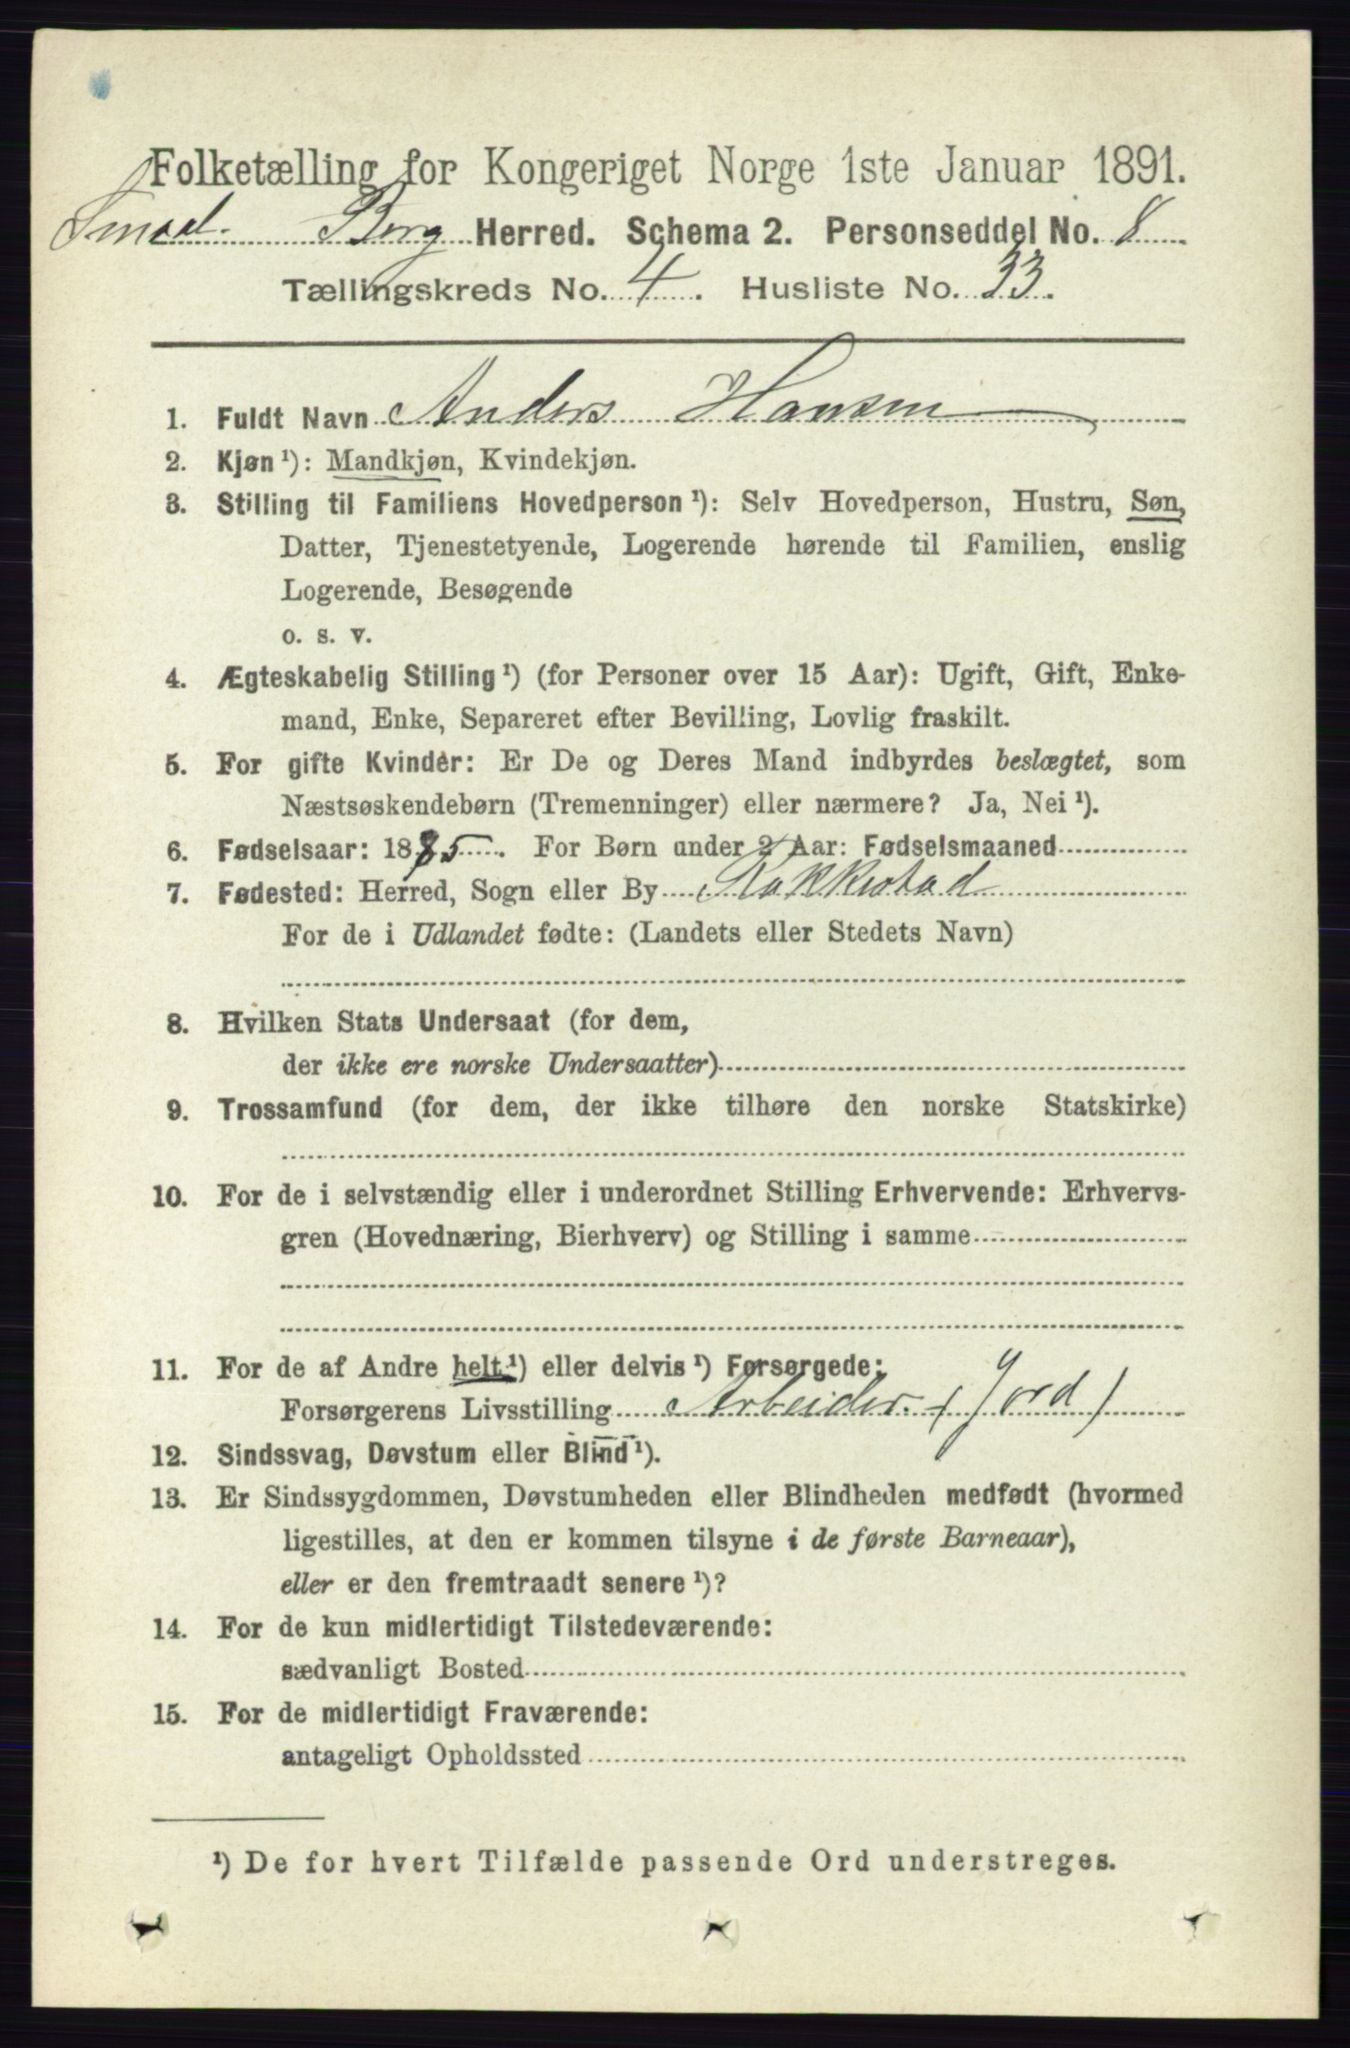 Folketælling for Kongeriget Norge 1ste Januar 1891.
Berg Herred. Schema 2. Personseddel No. 8
Tællingskreds No. 4. Husliste No. 33.
1. Fuldt Navn Anders Hansen
2. Kjøn¹): Mandkjøn, Kvindekjøn.
3. Stilling til Familiens Hovedperson¹): Selv Hovedperson, Hustru, Søn,
Datter, Tjenestetyende, Logerende hørende til Familien, enslig
Logerende, Besøgende
o. s. v.
4. Ægteskabelig Stilling¹) (for Personer over 15 Aar): Ugift, Gift, Enke-
mand, Enke, Separeret efter Bevilling, Lovlig fraskilt.
5. For gifte Kvinder: Er De og Deres Mand indbyrdes beslægtet, som
Næstsøskendebørn (Tremenninger) eller nærmere? Ja, Nei¹).
6. Fødselsaar: 1885. For Børn under 2 Aar: Fødselsmaaned
7. Fødested: Herred, Sogn eller By Rakkestad
For de i Udlandet fødte: (Landets eller Stedets Navn)
8. Hvilken Stats Undersaat (for dem,
der ikke ere norske Undersaatter)
9. Trossamfund (for dem, der ikke tilhøre den norske Statskirke)
10. For de i selvstændig eller i underordnet Stilling Erhvervende: Erhvervs-
gren (Hovednæring, Bierhverv) og Stilling i samme
11. For de af Andre helt¹) eller delvis¹) Forsørgede:
Forsørgerens Livsstilling Arbeider. (Jord)
12. Sindssvag, Døvstum eller Blind¹).
13. Er Sindssygdommen, Døvstumheden eller Blindheden medfødt (hvormed
ligestilles, at den er kommen tilsyne i de første Barneaar),
eller er den fremtraadt senere¹)?
14. For de kun midlertidigt Tilstedeværende:
sædvanligt Bosted
15. For de midlertidigt Fraværende:
antageligt Opholdssted
¹) De for hvert Tilfælde passende Ord understreges.